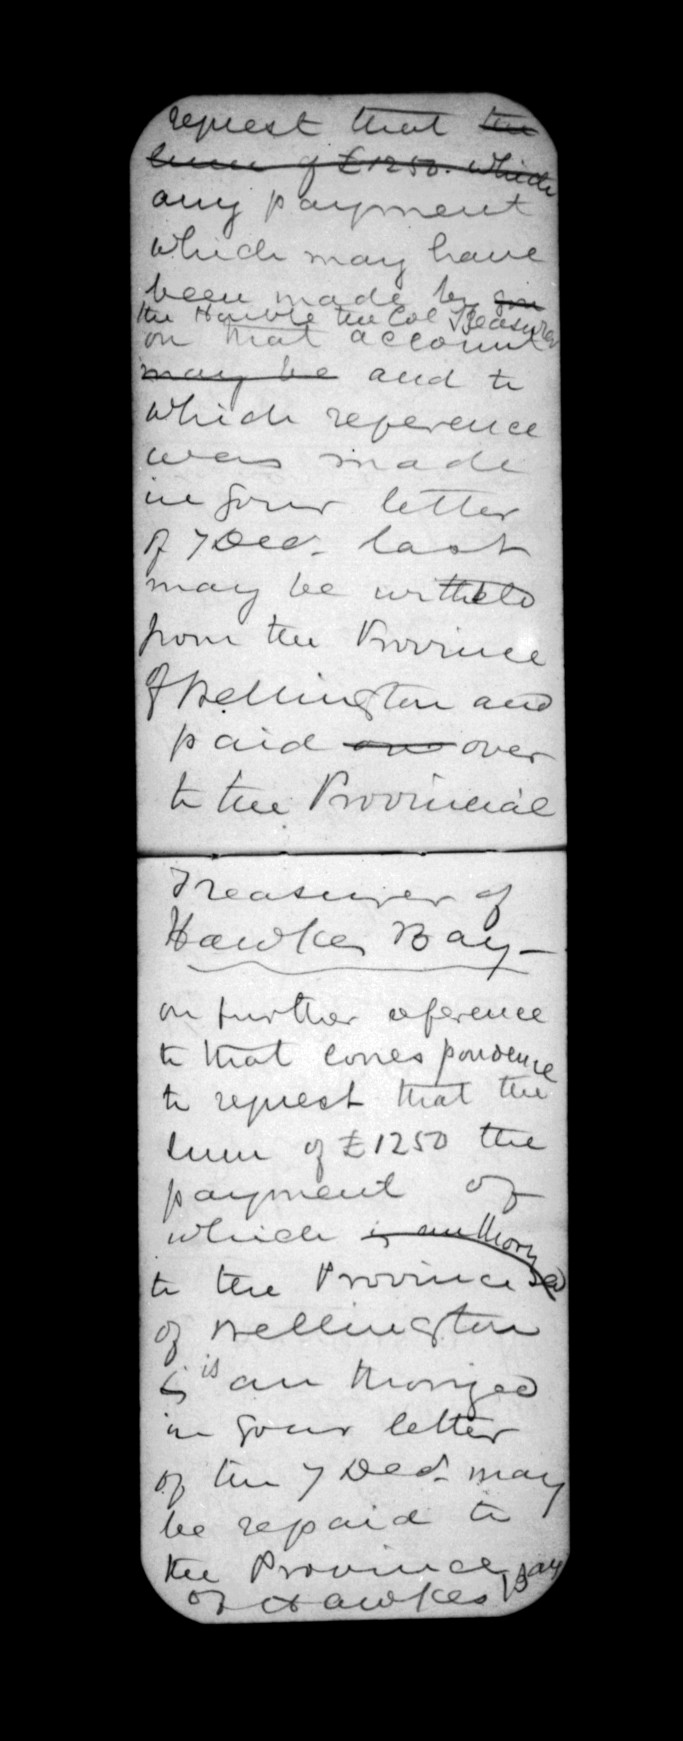 request that the
sum of £1250. which
any payment
which may have
been made by
the Honble the Col Treasurer
on that account
may be and to
which reference
was made
in your letter
of 7 Decr. last
may be withheld
from the Province
of Wellington and
paid over
to the Provincial
Treasurer of
Hawkes Bay -
on further reference
to that correspondence
to request that the
sum of £1250 the
payment of
which is authorized
to the Province
of Wellington
is is authorized
in your letter
of the 7 Decr. may
be repaid to
the Province
of Hawkes Bay